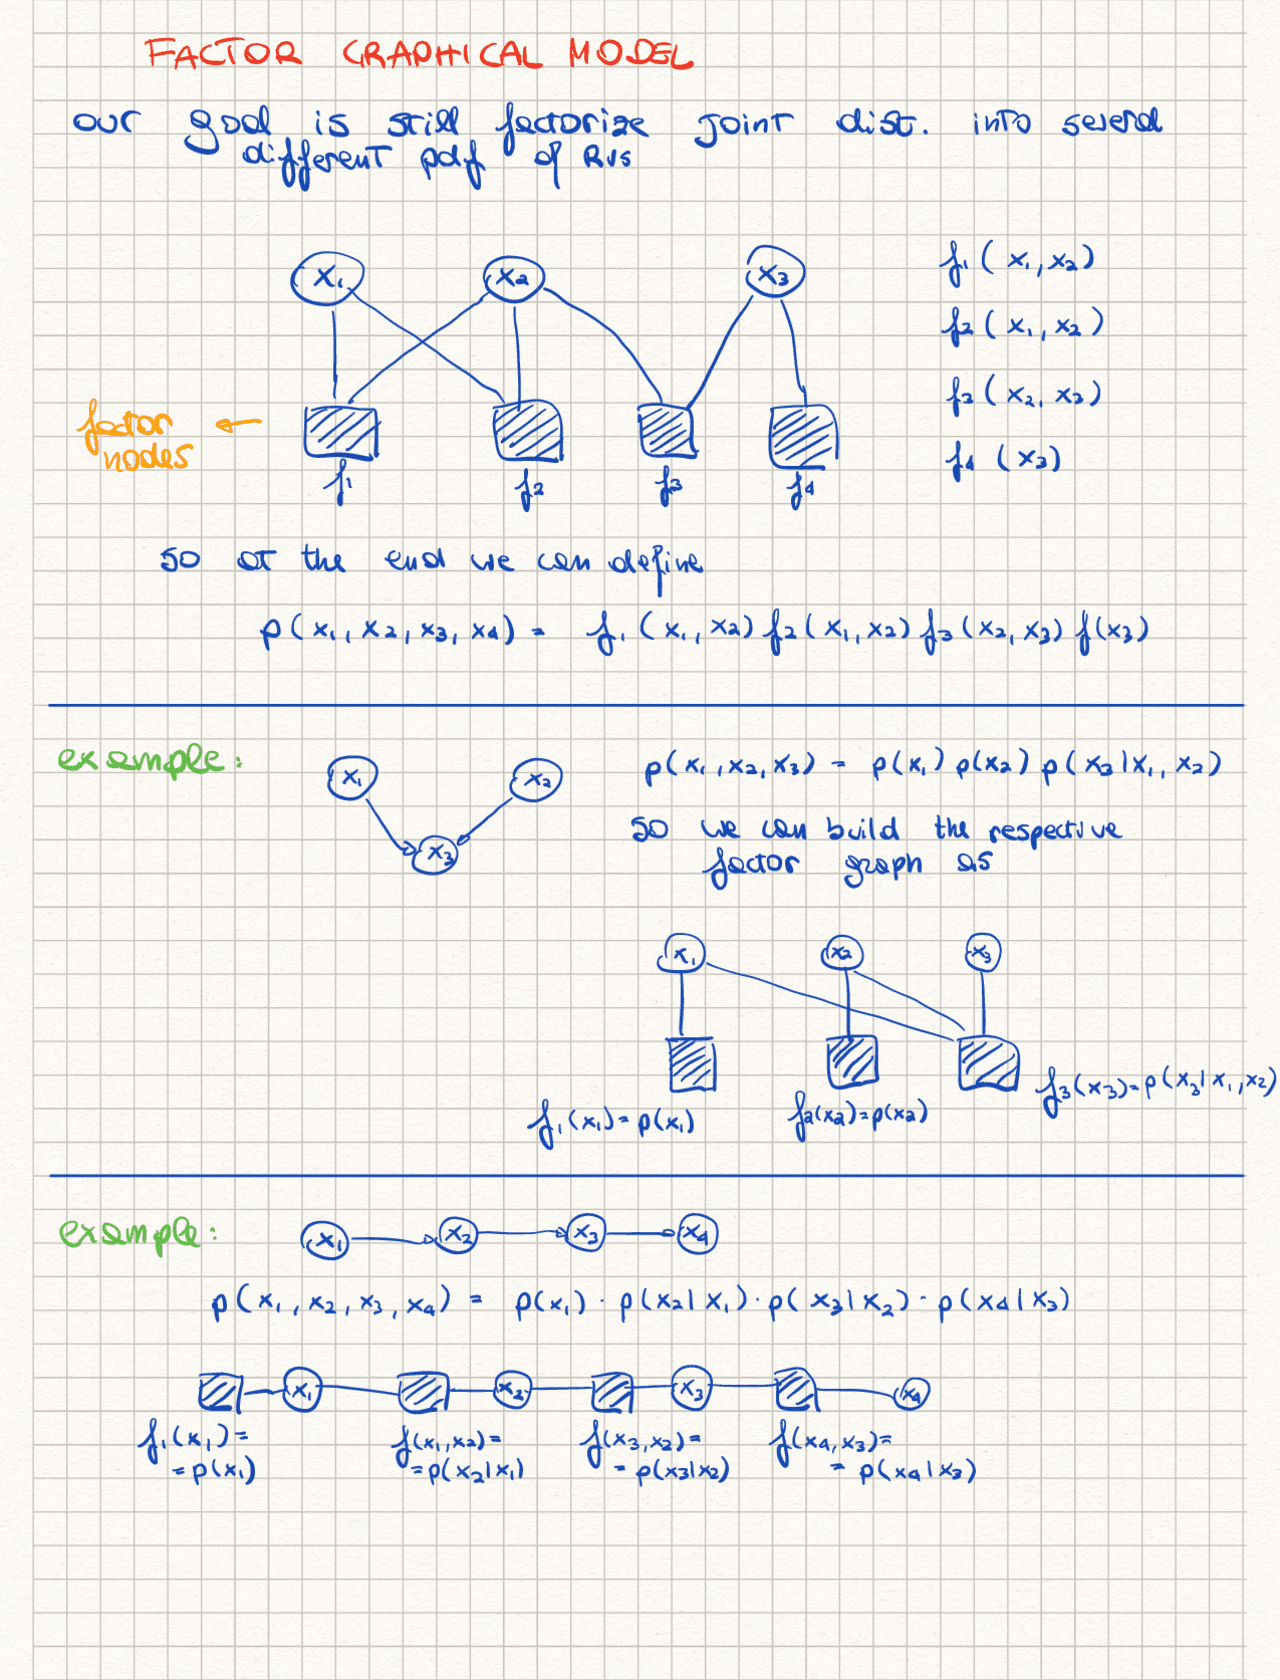 FACTOR GRAPHICAL MODEL
our goal is still factorize joint dist. into several
different pdf of RVs
x₁ x₂ x₃
f₁ (x₁, x₂)
f₂ (x₁, x₂)
f₃ (x₂, x₃)
f₄ (x₃)
factor
nodes
f₁ f₂ f₃ f₄
so at the end we can define
p(x₁, x₂, x₃, x₄) = f₁(x₁, x₂) f₂(x₁, x₂) f₃(x₂, x₃) f(x₃)
example:
x₁ x₂
x₃
p(x₁, x₂, x₃) = p(x₁) p(x₂) p(x₃|x₁, x₂)
so we can build the respective
factor graph as
x₁ x₂ x₃
f₁(x₁) = p(x₁) f₂(x₂) = p(x₂) f₃(x₃) = p(x₃|x₁, x₂)
example:
x₁ x₂ x₃ x₄
p(x₁, x₂, x₃, x₄) = p(x₁) · p(x₂|x₁) · p(x₃|x₂) · p(x₄|x₃)
x₁ x₂ x₃ x₄
f₁(x₁) = f(x₁, x₂) = f(x₃, x₂) = f(x₄, x₃) =
= p(x₁) = p(x₂|x₁) = p(x₃|x₂) = p(x₄|x₃)